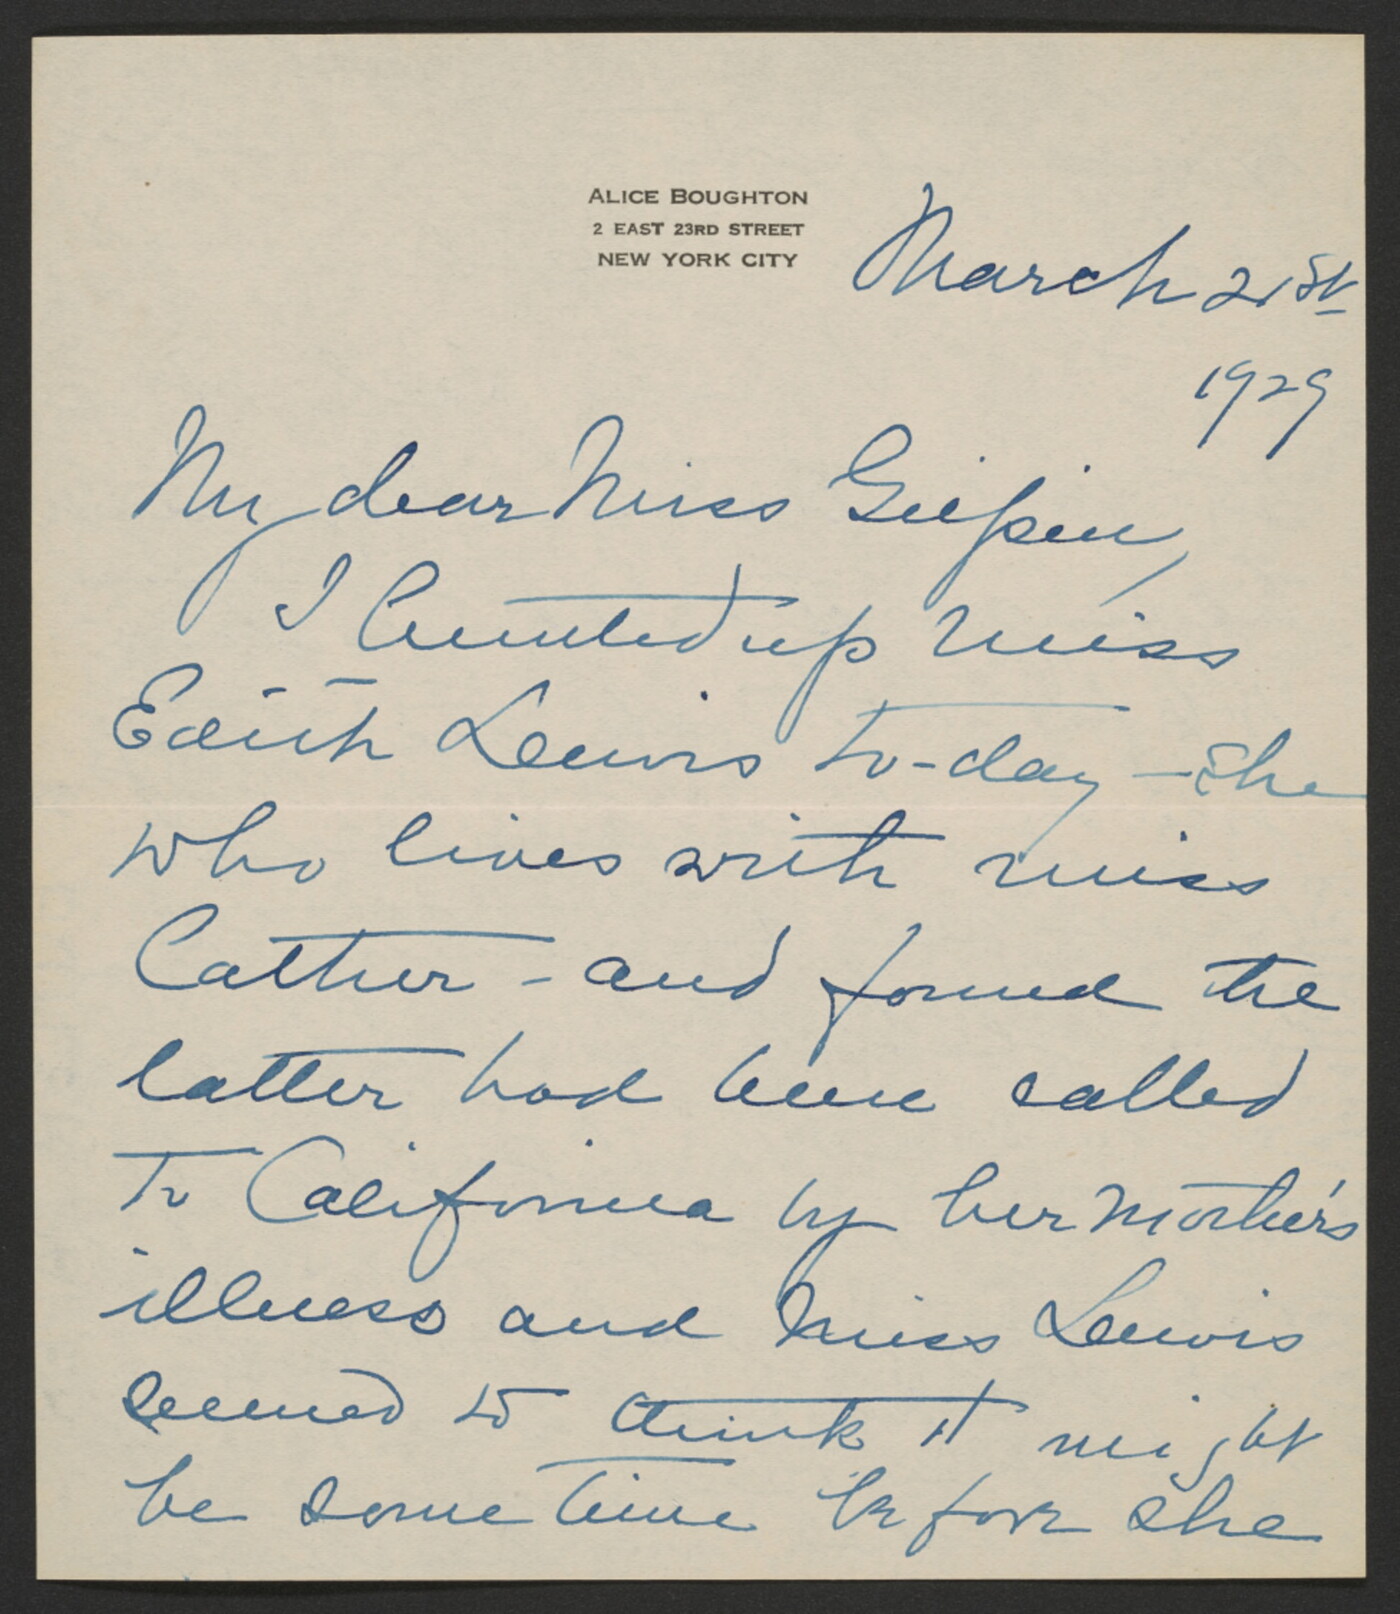 ALICE BOUGHTON
2 EAST 23RD STREET
NEW YORK CITY
March 21st
1929
My dear Miss Gilpin,
I hunted up Miss
Edith Lewis to-day - she
who lives with Miss
Cather - and found the
latter had been called
to California by her mother's
illness and Miss Lewis
seemed to think it might
be some time before she